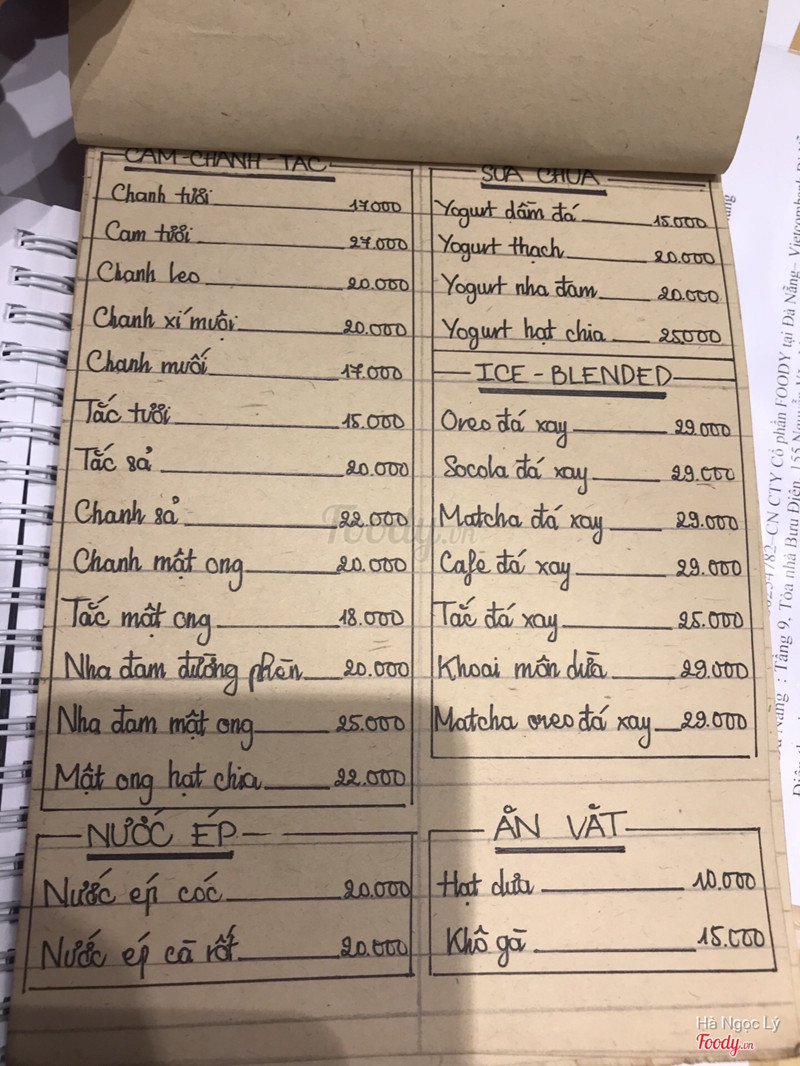 CAM-CHANH-TẮC
Chanh tươi 17.000
Cam tươi 27.000
Chanh leo 20.000
Chanh xí muội 20.000
Chanh muối 17.000
Tắc tươi 15.000
Tắc sả 20.000
Chanh sả 22.000
Chanh mật ong 20.000
Tắc mật ong 18.000
Nha đam đường phèn 20.000
Nha đam mật ong 25.000
Mật ong hạt chia 22.000
NƯỚC ÉP
Nước ép cóc 20.000
Nước ép cà rốt 20.000
SỮA CHUA
Yogurt dầm đá 15.000
Yogurt thạch 20.000
Yogurt nha đam 20.000
Yogurt hạt chia 25000
ICE-BLENDED
Oreo đá xay 29.000
Socola đá xay 29.000
Matcha đá xay 29.000
Cafe đá xay 29.000
Tắc đá xay 25.000
Khoai môn dừa 29.000
Matcha oreo đá xay 29.000
ĂN VẶT
Hạt dưa 10.000
Khô gà 15.000
CN CTY Cổ phần FOODY tại Đà Nẵng - Vietcombank
Tầng 9, Tòa nhà Bưu Điện, 155
Foody.vn
Hà Ngọc Lý
Foody.vn